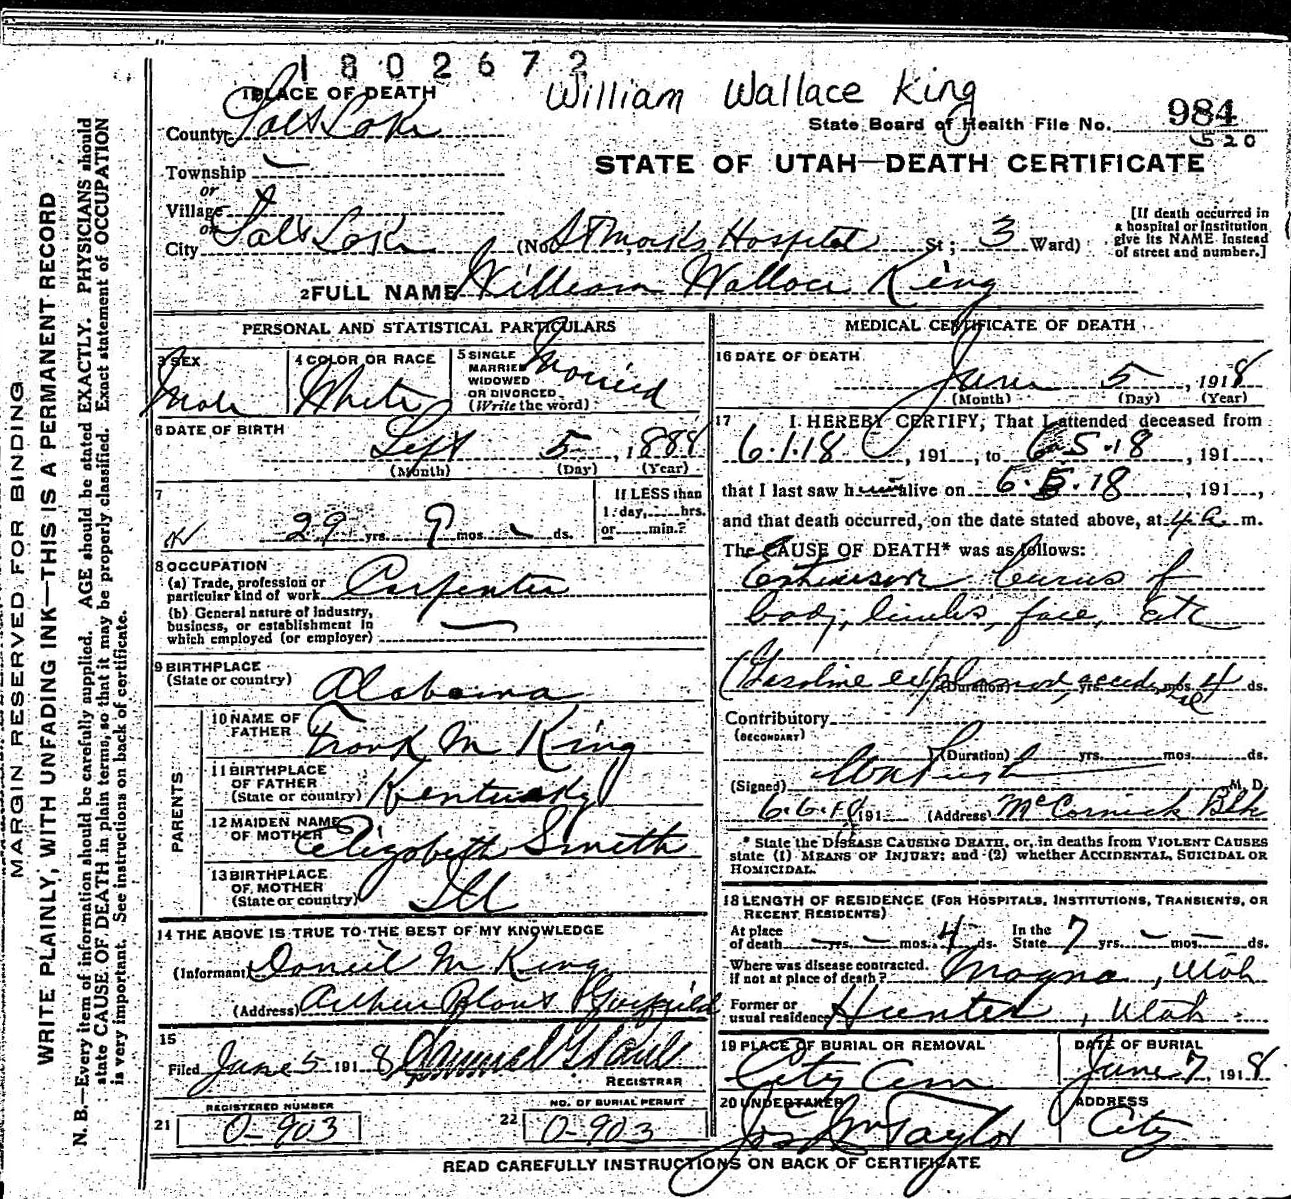 1802672
William Wallace King
1 PLACE OF DEATH
County Salt Lake
State Board of Health File No. 984
520
Township —
or
Village
or
City Salt Lake
STATE OF UTAH—DEATH CERTIFICATE
(No. St Marks Hospital St; 3 Ward)
[If death occurred in
a hospital or institution
give its NAME instead
of street and number.]
2 FULL NAME William Wallace King
PERSONAL AND STATISTICAL PARTICULARS
3 SEX
Male
4 COLOR OR RACE
White
5 SINGLE
MARRIED
WIDOWED
OR DIVORCED
(Write the word)
Married
6 DATE OF BIRTH
Sept 5, 1888
(Month) (Day) (Year)
7
29 yrs. 9 mos. — ds.
If LESS than
1 day, hrs.
or min.?
8 OCCUPATION
(a) Trade, profession or
particular kind of work Carpenter
(b) General nature of industry,
business, or establishment in
which employed (or employer) —
9 BIRTHPLACE
(State or country) Alabama
PARENTS
10 NAME OF
FATHER Frank M King
11 BIRTHPLACE
OF FATHER
(State or country) Kentucky
12 MAIDEN NAME
OF MOTHER Elizabeth Smith
13 BIRTHPLACE
OF MOTHER
(State or country) Ill
14 THE ABOVE IS TRUE TO THE BEST OF MY KNOWLEDGE
(Informant) Daniel M King
(Address) Arthur Plant Garfield
15
Filed June 5 1918
REGISTRAR
REGISTERED NUMBER
21 0-903
NO. OF BURIAL PERMIT
22 0-903
MEDICAL CERTIFICATE OF DEATH
16 DATE OF DEATH
June 5, 1918
(Month) (Day) (Year)
17 I HEREBY CERTIFY, That I attended deceased from
6.1.18, 191, to 6.5.18, 191,
that I last saw him alive on 6.5.18, 191,
and that death occurred, on the date stated above, at 4 a. m.
The CAUSE OF DEATH* was as follows:
Extensive burns of
body, limbs, face, etc
(Gasoline explosion accidental
(Duration) yrs. mos. 4 ds.
Contributory
(SECONDARY)
(Duration) yrs. mos. ds.
(Signed) M. D.
6.6.18 191 (Address) McCornick Blk
* State the DISEASE CAUSING DEATH, or, in deaths from VIOLENT CAUSES
state (1) MEANS OF INJURY; and (2) whether ACCIDENTAL, SUICIDAL OR
HOMICIDAL.
18 LENGTH OF RESIDENCE (FOR HOSPITALS, INSTITUTIONS, TRANSIENTS, OR
RECENT RESIDENTS)
At place
of death — yrs. — mos. 4 ds.
In the
State 7 yrs. — mos. — ds.
Where was disease contracted,
if not at place of death? Magna, Utah
Former or
usual residence Hunter, Utah
19 PLACE OF BURIAL OR REMOVAL
City Cem
DATE OF BURIAL
June 7, 1918
20 UNDERTAKER
Jos Wm Taylor
ADDRESS
City
READ CAREFULLY INSTRUCTIONS ON BACK OF CERTIFICATE
MARGIN RESERVED FOR BINDING
WRITE PLAINLY, WITH UNFADING INK—THIS IS A PERMANENT RECORD
N. B.—Every item of information should be carefully supplied. AGE should be stated EXACTLY. PHYSICIANS should
state CAUSE OF DEATH in plain terms, so that it may be properly classified. Exact statement of OCCUPATION
is very important. See instructions on back of certificate.